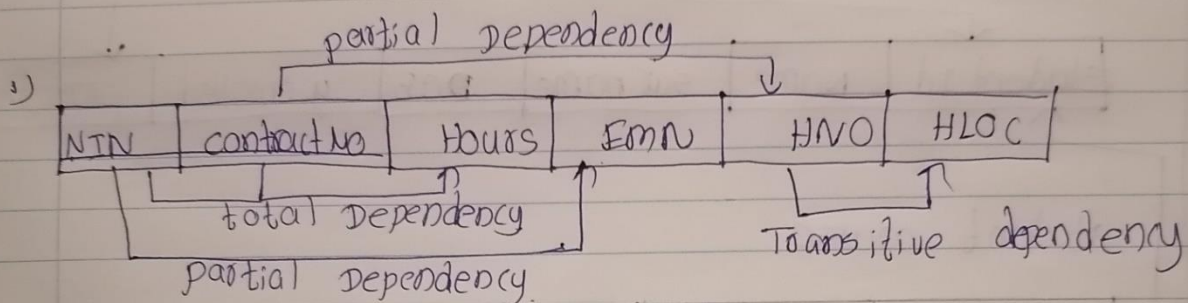 partial Dependency
1)
NIN contract No Hours Emn HNO HLOC
total Dependency
Transitive dependency
partial Dependency